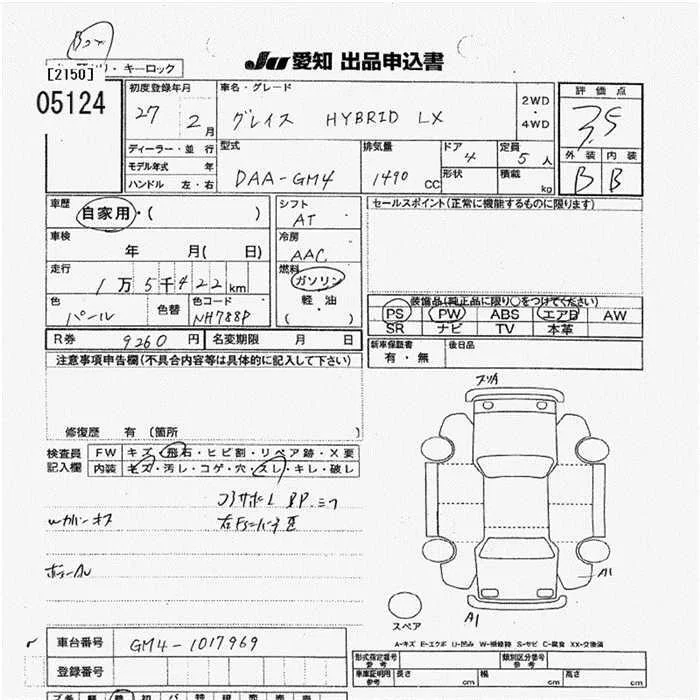 [2150]
・キーロック
JU 愛知 出品申込書
05124
初度登録年月
27 2月
車名・グレード
グレイス HYBRID LX
2WD
・
4WD
評価点
3.5
ディーラー・並行
モデル年式 年
ハンドル 左・右
型式
DAA-GM4
排気量
1490 CC
ドア
4
定員
5人
形状
積載
kg
外装 内装
B B
車歴
自家用・( )
シフト
AT
セールスポイント(正常に機能するものに限ります)
車検
年 月( 日)
冷房
AAC
走行
1万5千422km
燃料
ガソリン
軽・油
( )
色
パール
色替
色コード
NH788P
装備品(純正品に限り○をつけてください)
PS PW ABS エアB AW
SR ナビ TV 本革
R券 9260円
名変期限 月 日
新車保証書
有・無
後日品
注意事項申告欄(不具合内容等は具体的に記入して下さい)
修復歴 有 (箇所 )
検査員
記入欄
FW キズ・飛石・ヒビ割・リペア跡・X要
内装 キズ・汚レ・コゲ・穴・スレ・キレ・破レ
A1
A1
スペア
A-キズ E-エクボ U-凹み W-補修跡 S-サビ C-腐食 XX-交換済
車台番号
GM4-1017969
登録番号
形式指定番号
参考
類別区分番号
参考
車庫証明用
参考
長さ cm
幅 cm
高さ cm